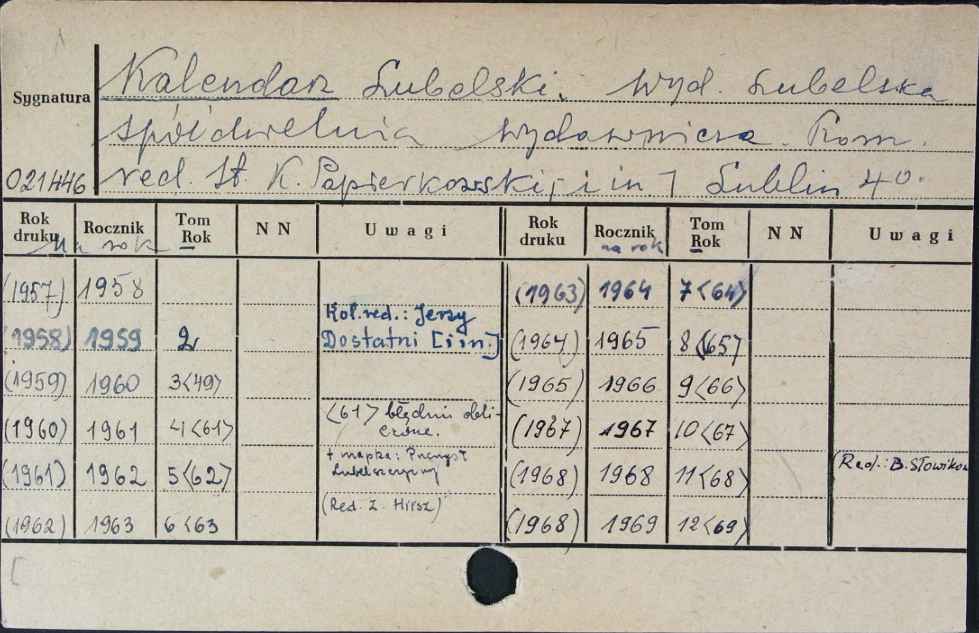 Sygnatura
021446
Kalendarz Lubelski. Wyd. Lubelska
Spółdzielnia Wydawnicza. Kom.
red. St. K. Papierkowski, i in. Lublin 4º.
Rok druku Rocznik Tom Rok N N Uwagi Rok druku Rocznik Tom Rok N N Uwagi
Na rok na rok
(1957) 1958 (1963) 1964 7<64>
(1958) 1959 2 Kol. red.: Jerzy Dostatni [i in.] (1964) 1965 8<65>
(1959) 1960 3<49> (1965) 1966 9<66>
(1960) 1961 4<61> <61> błędnie obli- (1967) 1967 10<67>
czone.
(1961) 1962 5<62> + mapka: Przemysł Lubelszczyzny (1968) 1968 11<68> (Red.: B. Słowikow
(1962) 1963 6<63 (Red. Z. Hirsz) (1968) 1969 12<69>